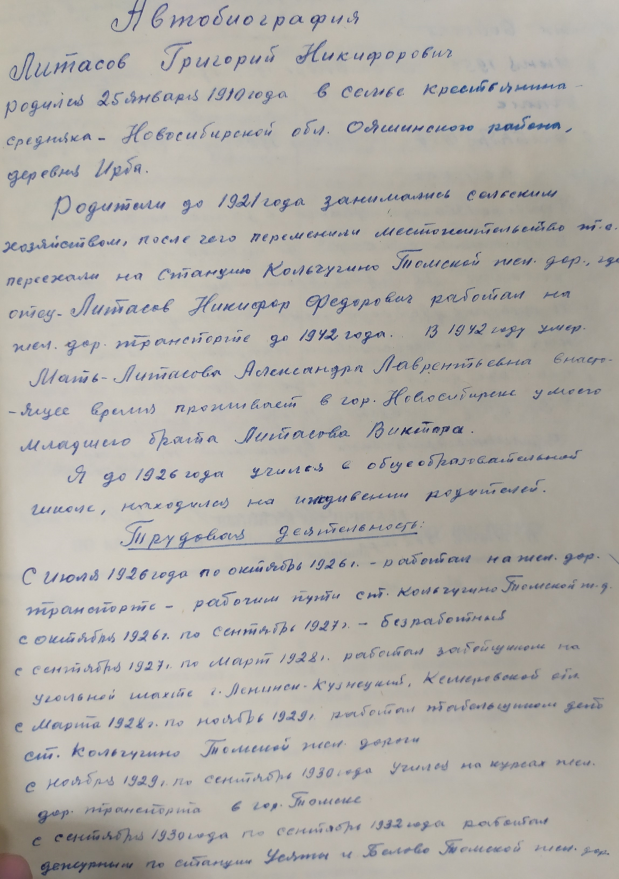 Автобиография
Литасов Григорий Никифорович
родился 25 января 1910 года в семье крестьянина-
середняка - Новосибирской обл. Ояшинского района,
деревня Ирба.
Родители до 1921 года занимались сельским
хозяйством, после чего переменили местожительство т.е.
переехали на станцию Кольчугино Томской жел. дор., где
отец - Литасов Никифор Федорович работал на
жел. дор. транспорте до 1942 года. В 1942 году умер.
Мать - Литасова Александра Лаврентьевна внаст-
-ящее время проживает в гор. Новосибирске у моего
младшего брата Литасова Виктора.
Я до 1926 года учился в общеобразовательной
школе, находился на иждивении родителей.
Трудовая деятельность:
С Июля 1926 года по октябрь 1926 г. - работал на жел. дор.
транспорте - рабочим пути ст. Кольчугино Томской ж.д.
с октября 1926 г. по сентябрь 1927 г. - безработный
с сентября 1927 г. по Март 1928 г. работал забойщиком на
угольной шахте г. Ленинск-Кузнецкий, Кемеровской обл
с Марта 1928 г. по ноябрь 1929 г. работал табельщиком депо
ст. Кольчугино Томской жел. дороги
с ноября 1929 г. по сентябрь 1930 года учился на курсах жел.
дор. транспорта в гор. Томске
с сентября 1930 года по сентябрь 1932 года работал
дежурным по станции Усяты и Белово Томской жел. дор.